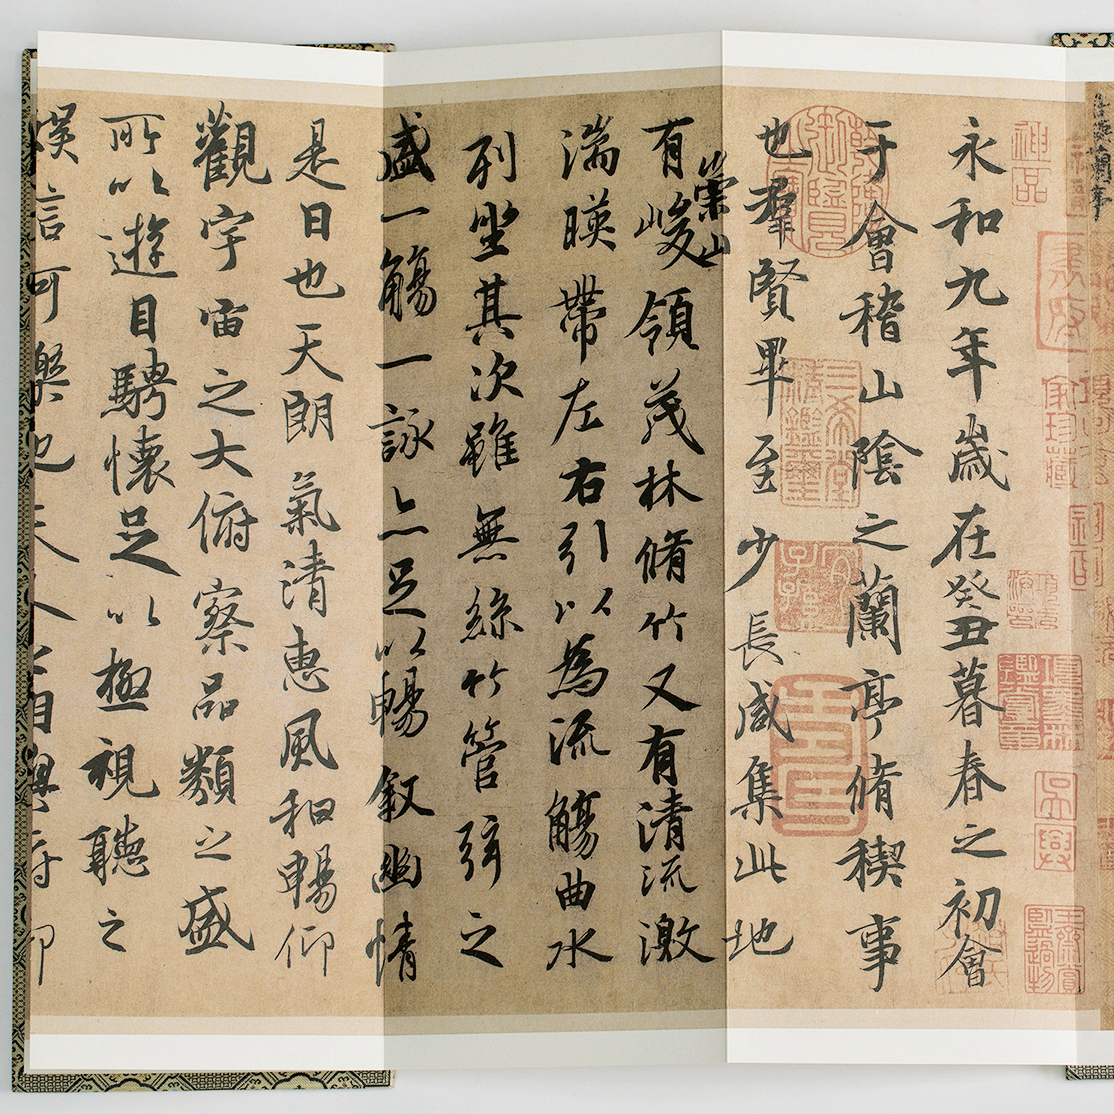 神品
永和九年歲在癸丑暮春之初會
于會稽山陰之蘭亭脩稧事
也羣賢畢至少長咸集此地
有崇山峻領茂林脩竹又有清流激
湍暎帶左右引以為流觴曲水
列坐其次雖無絲竹管弦之
盛一觴一詠亦足以暢叙幽情
是日也天朗氣清惠風和暢仰
觀宇宙之大俯察品類之盛
所以遊目騁懷足以極視聽之
娛信可樂也夫人之相與俯仰